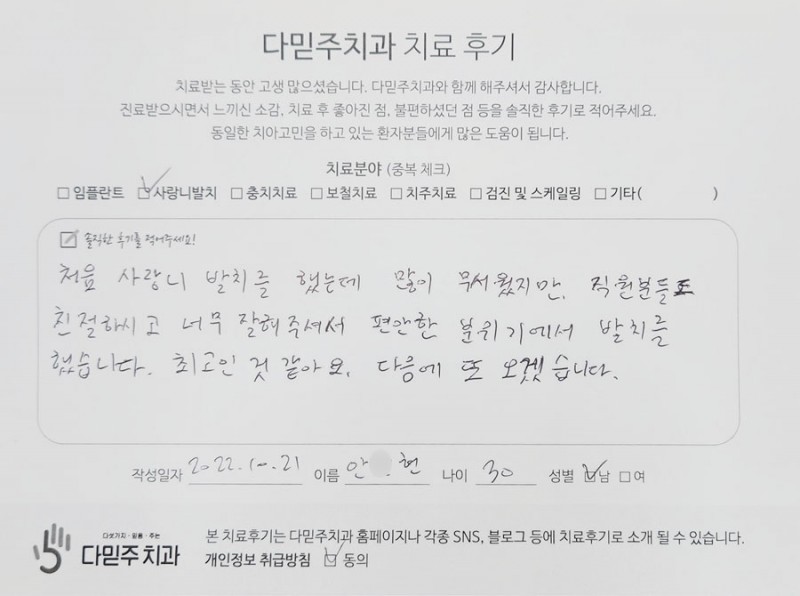 다믿주치과 치료 후기
치료받는 동안 고생 많으셨습니다. 다믿주치과와 함께 해주셔서 감사합니다.
진료받으시면서 느끼신 소감, 치료 후 좋아진 점, 불편하셨던 점 등을 솔직한 후기로 적어주세요.
동일한 치아고민을 하고 있는 환자분들에게 많은 도움이 됩니다.
치료분야 (중복 체크)
임플란트 사랑니발치 충치치료 보철치료 치주치료 검진 및 스케일링 기타( )
솔직한 후기를 적어주세요!
처음 사랑니 발치를 했는데 많이 무서웠지만, 직원분들도
친절하시고 너무 잘해주셔서 편안한 분위기에서 발치를
했습니다. 최고인 것 같아요. 다음에 또 오겠습니다.
작성일자 2022.10.21 이름 안 현 나이 30 성별 남 여
다섯가지·믿음·주는
다믿주치과
본 치료후기는 다믿주치과 홈페이지나 각종 SNS, 블로그 등에 치료후기로 소개 될 수 있습니다.
개인정보 취급방침 동의